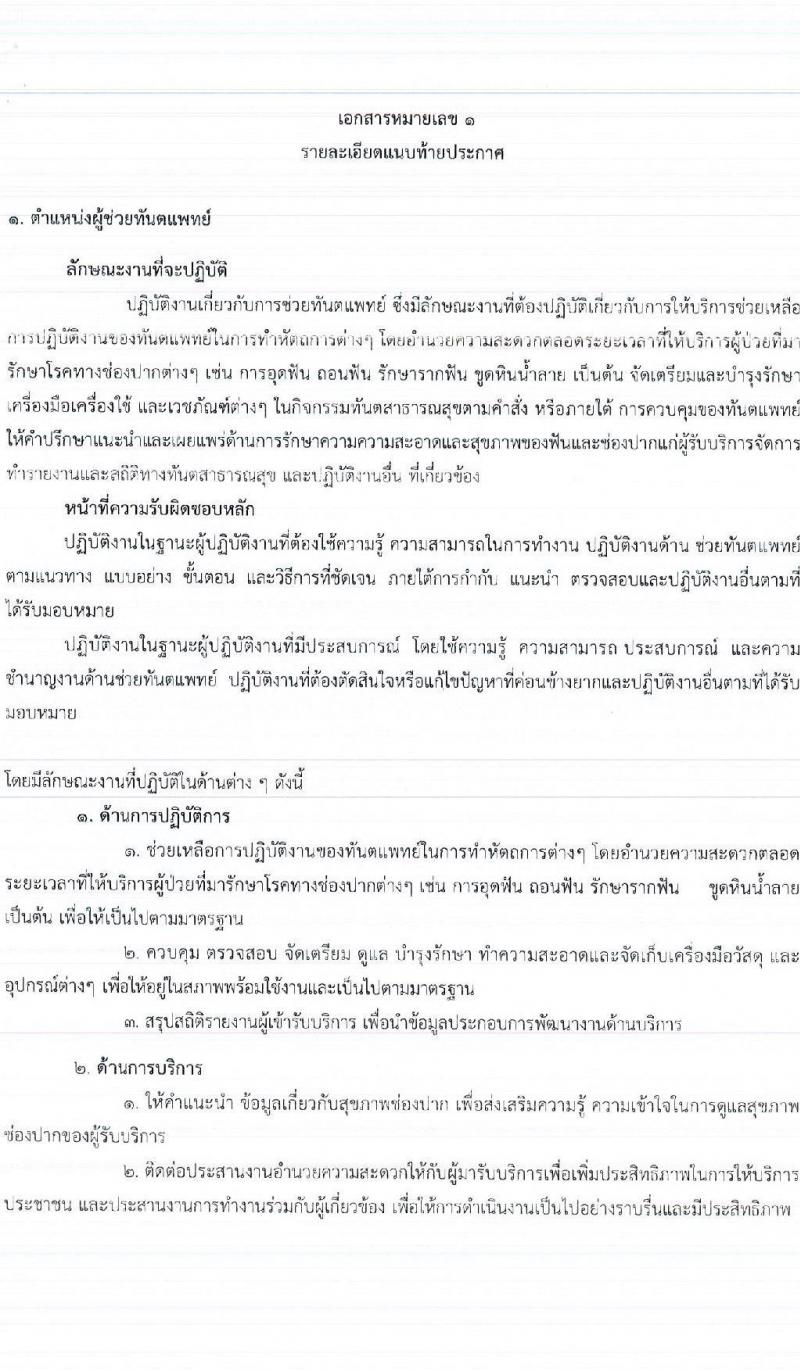 เอกสารหมายเลข ๑
รายละเอียดแนบท้ายประกาศ
๑. ตำแหน่งผู้ช่วยทันตแพทย์
ลักษณะงานที่จะปฏิบัติ
ปฏิบัติงานเกี่ยวกับการช่วยทันตแพทย์ ซึ่งมีลักษณะงานที่ต้องปฏิบัติเกี่ยวกับการให้บริการช่วยเหลือ
การปฏิบัติงานของทันตแพทย์ในการทำหัตถการต่างๆ โดยอำนวยความสะดวกตลอดระยะเวลาที่ให้บริการผู้ป่วยที่มา
รักษาโรคทางช่องปากต่างๆ เช่น การอุดฟัน ถอนฟัน รักษารากฟัน ขูดหินน้ำลาย เป็นต้น จัดเตรียมและบำรุงรักษา
เครื่องมือเครื่องใช้ และเวชภัณฑ์ต่างๆ ในกิจกรรมทันตสาธารณสุขตามคำสั่ง หรือภายใต้ การควบคุมของทันตแพทย์
ให้คำปรึกษาแนะนำและเผยแพร่ด้านการรักษาความความสะอาดและสุขภาพของฟันและช่องปากแก่ผู้รับบริการจัดการ
ทำรายงานและสถิติทางทันตสาธารณสุข และปฏิบัติงานอื่น ที่เกี่ยวข้อง
หน้าที่ความรับผิดชอบหลัก
ปฏิบัติงานในฐานะผู้ปฏิบัติงานที่ต้องใช้ความรู้ ความสามารถในการทำงาน ปฏิบัติงานด้าน ช่วยทันตแพทย์
ตามแนวทาง แบบอย่าง ขั้นตอน และวิธีการที่ชัดเจน ภายใต้การกำกับ แนะนำ ตรวจสอบและปฏิบัติงานอื่นตามที่
ได้รับมอบหมาย
ปฏิบัติงานในฐานะผู้ปฏิบัติงานที่มีประสบการณ์ โดยใช้ความรู้ ความสามารถ ประสบการณ์ และความ
ชำนาญงานด้านช่วยทันตแพทย์ ปฏิบัติงานที่ต้องตัดสินใจหรือแก้ไขปัญหาที่ค่อนข้างยากและปฏิบัติงานอื่นตามที่ได้รับ
มอบหมาย
โดยมีลักษณะงานที่ปฏิบัติในด้านต่าง ๆ ดังนี้
๑. ด้านการปฏิบัติการ
๑. ช่วยเหลือการปฏิบัติงานของทันตแพทย์ในการทำหัตถการต่างๆ โดยอำนวยความสะดวกตลอด
ระยะเวลาที่ให้บริการผู้ป่วยที่มารักษาโรคทางช่องปากต่างๆ เช่น การอุดฟัน ถอนฟัน รักษารากฟัน ขูดหินน้ำลาย
เป็นต้น เพื่อให้เป็นไปตามมาตรฐาน
๒. ควบคุม ตรวจสอบ จัดเตรียม ดูแล บำรุงรักษา ทำความสะอาดและจัดเก็บเครื่องมือวัสดุ และ
อุปกรณ์ต่างๆ เพื่อให้อยู่ในสภาพพร้อมใช้งานและเป็นไปตามมาตรฐาน
๓. สรุปสถิติรายงานผู้เข้ารับบริการ เพื่อนำข้อมูลประกอบการพัฒนางานด้านบริการ
๒. ด้านการบริการ
๑. ให้คำแนะนำ ข้อมูลเกี่ยวกับสุขภาพช่องปาก เพื่อส่งเสริมความรู้ ความเข้าใจในการดูแลสุขภาพ
ช่องปากของผู้รับบริการ
๒. ติดต่อประสานงานอำนวยความสะดวกให้กับผู้มารับบริการเพื่อเพิ่มประสิทธิภาพในการให้บริการ
ประชาชน และประสานงานการทำงานร่วมกับผู้เกี่ยวข้อง เพื่อให้การดำเนินงานเป็นไปอย่างราบรื่นและมีประสิทธิภาพ